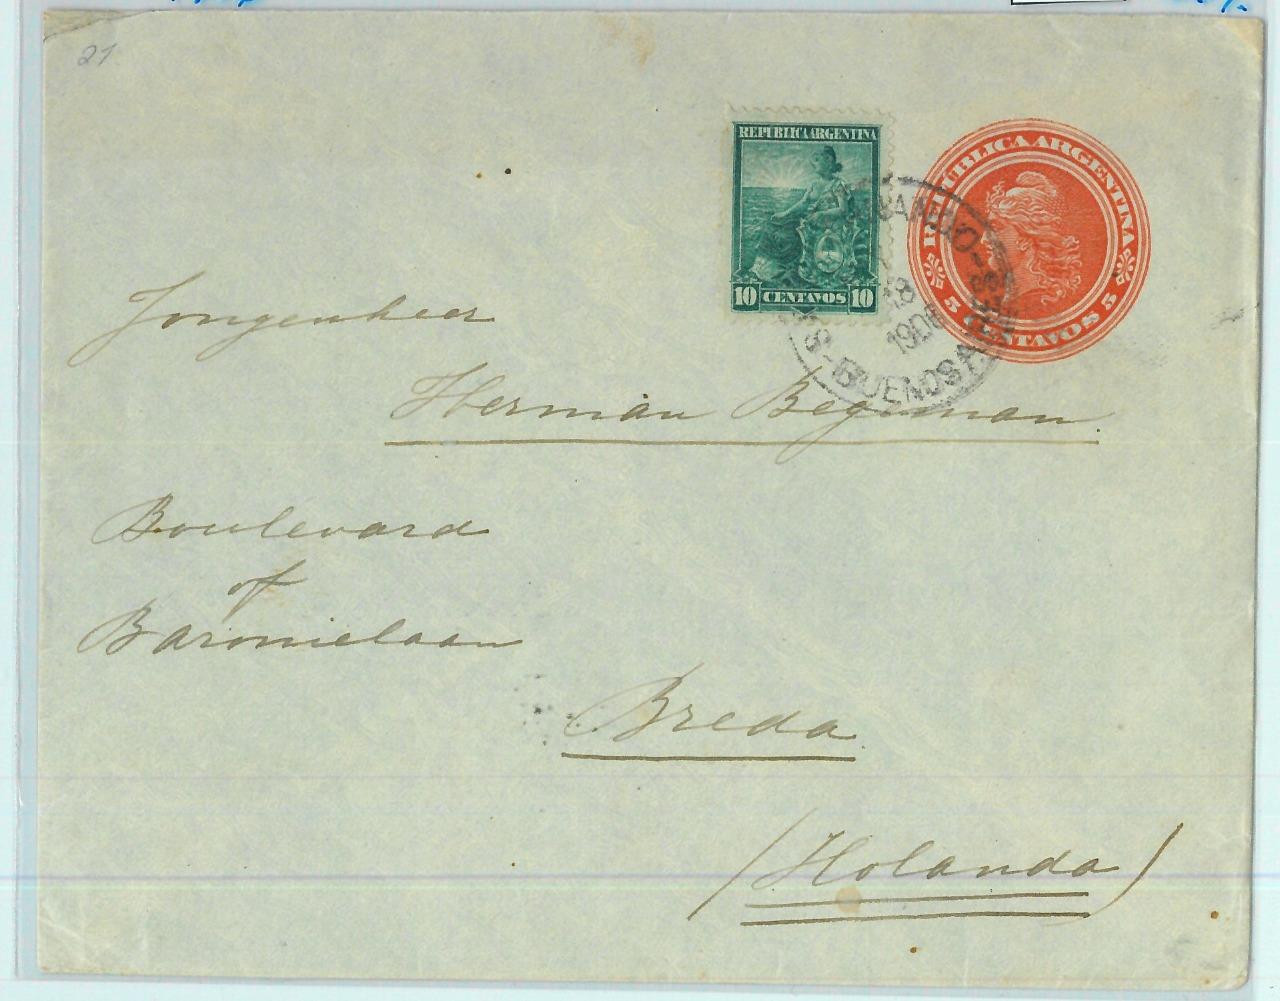 21
REPUBLICA ARGENTINA
10 CENTAVOS 10
REPÚBLICA ARGENTINA
5 CENTAVOS 5
BUENOS A
Jongenheer
Herman Begeman.
Boulevard
of
Baronielaan
Breda
(Holanda)